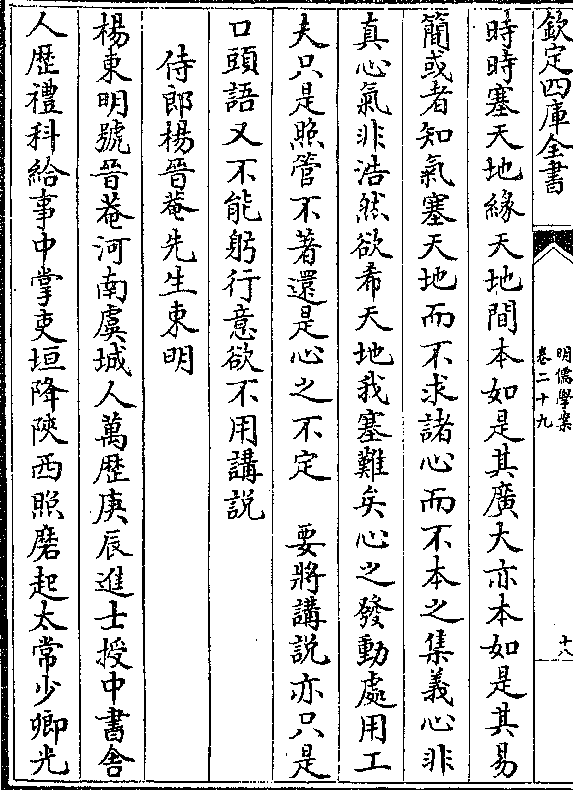 欽定四庫全書
明儒學案
卷二十九
十八
時時塞天地緣天地間本如是其廣大亦本如是其易
簡或者知氣塞天地而不求諸心而不本之集義心非
真心氣非浩然欲希天地我塞難矣心之發動處用工
夫只是照管不著還是心之不定　要將講説亦只是
口頭語又不能躬行意欲不用講説
侍郎楊晉菴先生東明
楊東明號晉菴河南虞城人萬歴庚辰進士授中書舍
人歴禮科給事中掌吏垣降陜西照磨起太常少卿光